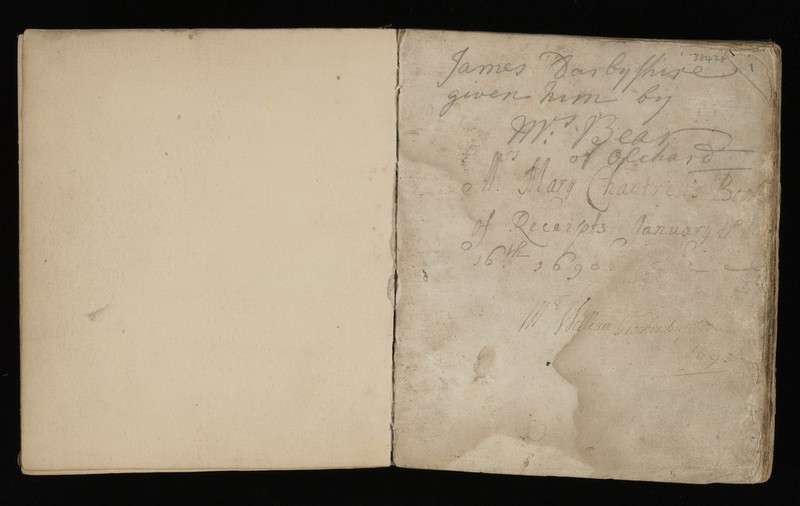 James Darbyshire
given him by
Mrs. Bear
of Orchard
Mrs Mary Chantrell's Book
of Receipts January the
16th 1690
Mr William
1690